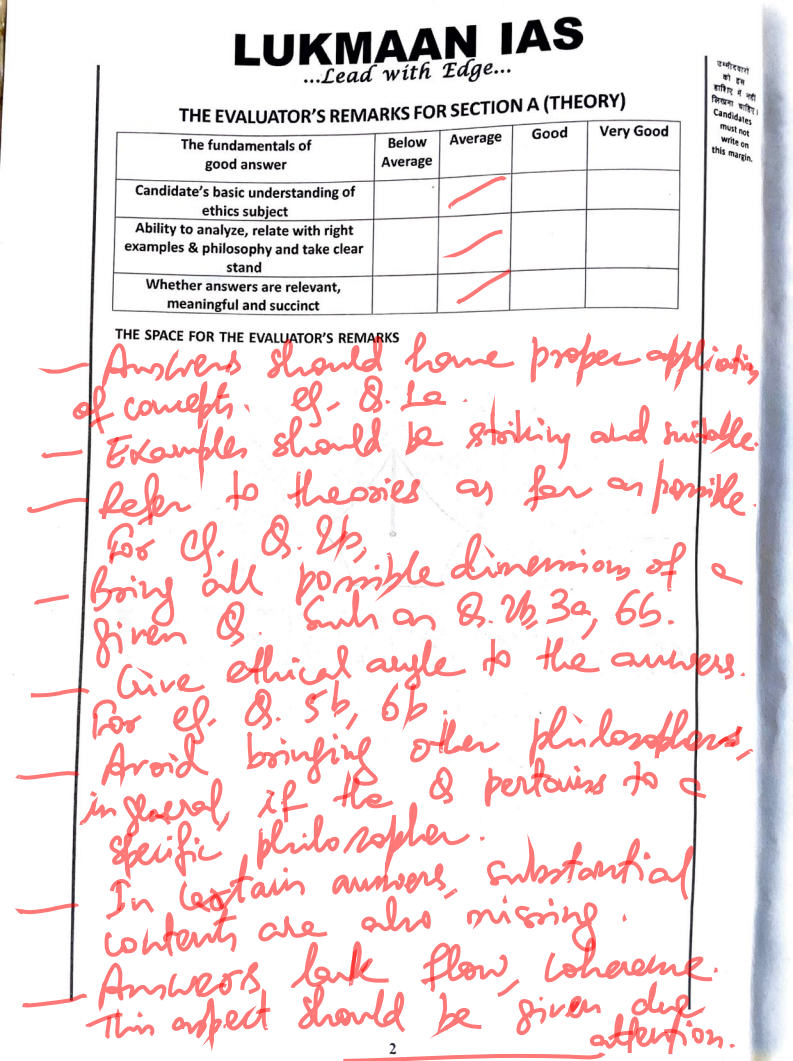 LUKMAAN IAS
...Lead with Edge...
उम्मीदवारों
को इस
हाशिए में नहीं
लिखना चाहिए।
Candidates
must not
write on
this margin.
THE EVALUATOR'S REMARKS FOR SECTION A (THEORY)
The fundamentals of good answer Below Average Average Good Very Good
Candidate's basic understanding of
ethics subject
Ability to analyze, relate with right
examples & philosophy and take clear
stand
Whether answers are relevant,
meaningful and succinct
THE SPACE FOR THE EVALUATOR'S REMARKS
— Answers should have proper application
of concepts. eg. Q. 1a.
— Examples should be striking and suitable.
— Refer to theories as far as possible.
For eg. Q. 2b,
— Bring all possible dimensions of a
given Q. Such as Q. 2b, 3a, 6b.
— Give ethical angle to the answers.
For eg. Q. 5b, 6b.
— Avoid bringing other philosophers,
in general, if the Q pertains to a
specific philosopher.
— In certain answers, substantial
contents are also missing.
— Answers lack flow, coherence.
This aspect should be given due
attention.
2